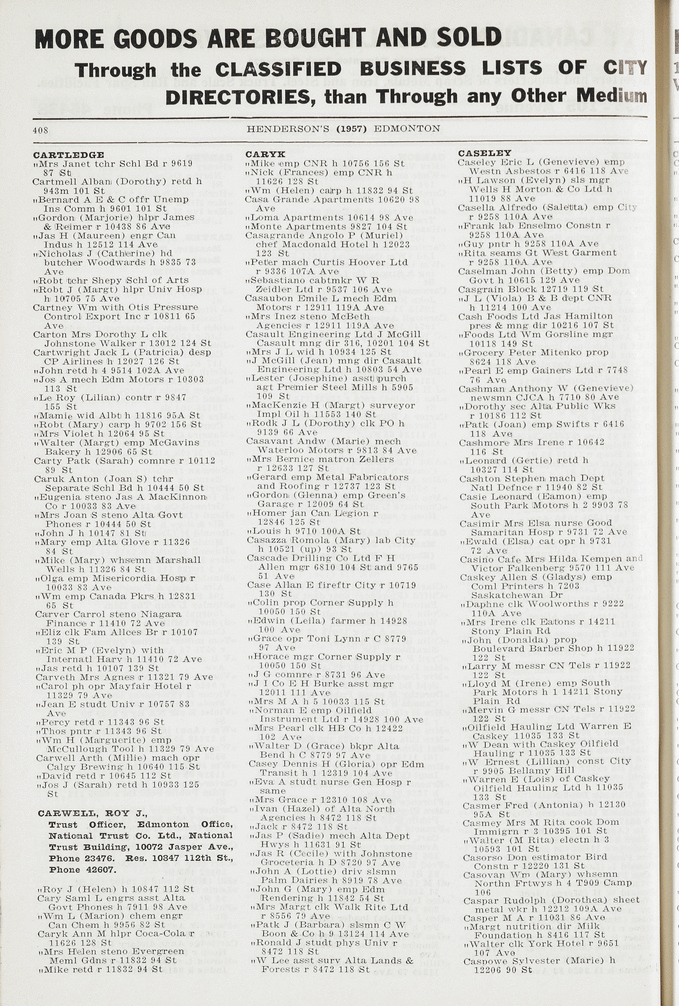 MORE GOODS ARE BOUGHT AND SOLD
Through the CLASSIFIED BUSINESS LISTS OF CITY
DIRECTORIES, than Through any Other Medium
408
HENDERSON'S (1957) EDMONTON
CARTLEDGE
"Mrs Janet tchr Schl Bd r 9619
87 St
Cartmell Alban (Dorothy) retd h
943m 101 St
"Bernard A E & C offr Unemp
Ins Comm h 9601 101 St
"Gordon (Marjorie) hlpr James
& Reimer r 10438 86 Ave
"Jas H (Maureen) engr Can
Indus h 12512 114 Ave
"Nicholas J (Catherine) hd
butcher Woodwards h 9835 73
Ave
"Robt tchr Shepy Schl of Arts
"Robt J (Margt) hlpr Univ Hosp
h 10705 75 Ave
Cartney Wm with Otis Pressure
Control Export Inc r 10811 65
Ave
Carton Mrs Dorothy L clk
Johnstone Walker r 13012 124 St
Cartwright Jack L (Patricia) desp
CP Airlines h 12027 126 St
"John retd h 4 9514 102A Ave
"Jos A mech Edm Motors r 10303
113 St
"Le Roy (Lilian) contr r 9847
155 St
"Mamie wid Albt h 11816 95A St
"Robt (Mary) carp h 9702 156 St
"Mrs Violet h 12064 95 St
"Walter (Margt) emp McGavins
Bakery h 12906 65 St
Carty Patk (Sarah) comnre r 10112
89 St
Caruk Anton (Joan S) tchr
Separate Schl Bd h 10444 50 St
"Eugenia steno Jas A MacKinnon
Co r 10033 83 Ave
"Mrs Joan S steno Alta Govt
Phones r 10444 50 St
"John J h 10147 81 St
"Mary emp Alta Glove r 11326
84 St
"Mike (Mary) whsemn Marshall
Wells h 11326 84 St
"Olga emp Misericordia Hosp r
10033 83 Ave
"Wm emp Canada Pkrs h 12831
65 St
Carver Carrol steno Niagara
Finance r 11410 72 Ave
"Eliz clk Fam Allces Br r 10107
139 St
"Eric M P (Evelyn) with
Internatl Harv h 11410 72 Ave
"Jas retd h 10107 139 St
Carveth Mrs Agnes r 11321 79 Ave
"Carol ph opr Mayfair Hotel r
11329 79 Ave
"Jean E studt Univ r 10757 83
Ave
"Percy retd r 11343 96 St
"Thos pntr r 11343 96 St
"Wm H (Marguerite) emp
McCullough Tool h 11329 79 Ave
Carwell Arth (Millie) mach opr
Calgy Brewing h 10640 115 St
"David retd r 10645 112 St
"Jos J (Sarah) retd h 10933 125
St
CARWELL, ROY J.,
Trust Officer, Edmonton Office,
National Trust Co. Ltd., National
Trust Building, 10072 Jasper Ave.,
Phone 23476. Res. 10847 112th St.,
Phone 42607.
"Roy J (Helen) h 10847 112 St
Cary Saml L engrs asst Alta
Govt Phones h 7911 98 Ave
"Wm L (Marion) chem engr
Can Chem h 9956 82 St
Caryk Ann M hlpr Coca-Cola r
11626 128 St
"Mrs Helen steno Evergreen
Meml Gdns r 11832 94 St
"Mike retd r 11832 94 St
CARYK
"Mike emp CNR h 10756 156 St
"Nick (Frances) emp CNR h
11626 128 St
"Wm (Helen) carp h 11832 94 St
Casa Grande Apartments 10620 98
Ave
"Loma Apartments 10614 98 Ave
"Monte Apartments 9827 104 St
Casagrande Angolo P (Muriel)
chef Macdonald Hotel h 12023
123 St
"Peter mach Curtis Hoover Ltd
r 9336 107A Ave
"Sebastiano cabtmkr W R
Zeidler Ltd r 9537 106 Ave
Casaubon Emile L mech Edm
Motors r 12911 119A Ave
"Mrs Inez steno McBeth
Agencies r 12911 119A Ave
Casault Engineering Ltd J McGill
Casault mng dir 316, 10201 104 St
"Mrs J L wid h 10934 125 St
"J McGill (Jean) mng dir Casault
Engineering Ltd h 10803 54 Ave
"Lester (Josephine) asst purch
agt Premier Steel Mills h 5905
109 St
"MacKenzie H (Margt) surveyor
Impl Oil h 11553 140 St
"Rodk J L (Dorothy) clk PO h
9139 66 Ave
Casavant Andw (Marie) mech
Waterloo Motors r 9813 84 Ave
"Mrs Bernice matron Zellers
r 12633 127 St
"Gerard emp Metal Fabricators
and Roofing r 12737 123 St
"Gordon (Glenna) emp Green's
Garage r 12009 64 St
"Homer jan Can Legion r
12846 125 St
"Louis h 9710 100A St
Casazza Romola (Mary) lab City
h 10521 (up) 93 St
Cascade Drilling Co Ltd F H
Allen mgr 6810 104 St and 9765
51 Ave
Case Allan E fireftr City r 10719
130 St
"Colin prop Corner Supply h
10050 150 St
"Edwin (Leila) farmer h 14928
100 Ave
"Grace opr Toni Lynn r C 8779
97 Ave
"Horace mgr Corner Supply r
10050 150 St
"J G comnre r 8731 96 Ave
"J I Co E H Burke asst mgr
12011 111 Ave
"Mrs M A h 5 10033 115 St
"Norman E emp Oilfield
Instrument Ltd r 14928 100 Ave
"Mrs Pearl clk HB Co h 12422
102 Ave
"Walter D (Grace) bkpr Alta
Bend h C 8779 97 Ave
Casey Dennis H (Gloria) opr Edm
Transit h 1 12319 104 Ave
"Eva A studt nurse Gen Hosp r
same
"Mrs Grace r 12310 108 Ave
"Ivan (Hazel) of Alta North
Agencies h 8472 118 St
"Jack r 8472 118 St
"Jas P (Sadie) mech Alta Dept
Hwys h 11631 91 St
"Jas R (Cecile) with Johnstone
Groceteria h D 8720 97 Ave
"John A (Lottie) driv slsmn
Palm Dairies h 8919 78 Ave
"John G (Mary) emp Edm
Rendering h 11842 54 St
"Mrs Margt clk Walk Rite Ltd
r 8556 79 Ave
"Patk J (Barbara) slsmn C W
Boon & Co h 9 13124 114 Ave
"Ronald J studt phys Univ r
8472 118 St
"W Lee asst surv Alta Lands &
Forests r 8472 118 St
CASELEY
Caseley Eric L (Genevieve) emp
Westn Asbestos r 6416 118 Ave
"H Lawson (Evelyn) sls mgr
Wells H Morton & Co Ltd h
11019 88 Ave
Casella Alfredo (Saletta) emp City
r 9258 110A Ave
"Frank lab Enselmo Constn r
9258 110A Ave
"Guy pntr h 9258 110A Ave
"Rita seams Gt West Garment
r 9258 110A Ave
Caselman John (Betty) emp Dom
Govt h 10615 129 Ave
Casgrain Block 12719 119 St
"J L (Viola) B & B dept CNR
h 11214 100 Ave
Cash Foods Ltd Jas Hamilton
pres & mng dir 10216 107 St
"Foods Ltd Wm Gorsline mgr
10118 149 St
"Grocery Peter Mitenko prop
8624 118 Ave
"Pearl E emp Gainers Ltd r 7748
76 Ave
Cashman Anthony W (Genevieve)
newsmn CJCA h 7710 80 Ave
"Dorothy sec Alta Public Wks
r 10186 112 St
"Patk (Joan) emp Swifts r 6416
118 Ave
Cashmore Mrs Irene r 10642
116 St
"Leonard (Gertie) retd h
10327 114 St
Cashton Stephen mach Dept
Natl Defnce r 11940 82 St
Casie Leonard (Eamon) emp
South Park Motors h 2 9903 78
Ave
Casimir Mrs Elsa nurse Good
Samaritan Hosp r 9731 72 Ave
"Ewald (Elsa) cat opr h 9731
72 Ave
Casino Cafe Mrs Hilda Kempen and
Victor Falkenberg 9570 111 Ave
Caskey Allen S (Gladys) emp
Coml Printers h 7203
Saskatchewan Dr
"Daphne clk Woolworths r 9222
110A Ave
"Mrs Irene clk Eatons r 14211
Stony Plain Rd
"John (Donalda) prop
Boulevard Barber Shop h 11922
122 St
"Larry M messr CN Tels r 11922
122 St
"Lloyd M (Irene) emp South
Park Motors h 1 14211 Stony
Plain Rd
"Mervin G messr CN Tels r 11922
122 St
"Oilfield Hauling Ltd Warren E
Caskey 11035 133 St
"W Dean with Caskey Oilfield
Hauling r 11035 133 St
"W Ernest (Lillian) const City
r 9905 Bellamy Hill
"Warren E (Lois) of Caskey
Oilfield Hauling Ltd h 11035
133 St
Casmer Fred (Antonia) h 12130
95A St
Casmey Mrs M Rita cook Dom
Immigrn r 3 10395 101 St
"Walter (M Rita) electn h 3
10593 101 St
Casorso Don estimator Bird
Constn r 12220 131 St
Casovan Wm (Mary) whsemn
Northn Frtwys h 4 T909 Camp
106
Caspar Rudolph (Dorothea) sheet
metal wkr h 12212 109A Ave
Casper M A r 11031 86 Ave
"Margt nutrition dir Milk
Foundation h 8416 117 St
"Walter clk York Hotel r 9651
107 Ave
Caspowe Sylvester (Marie) h
12206 90 St